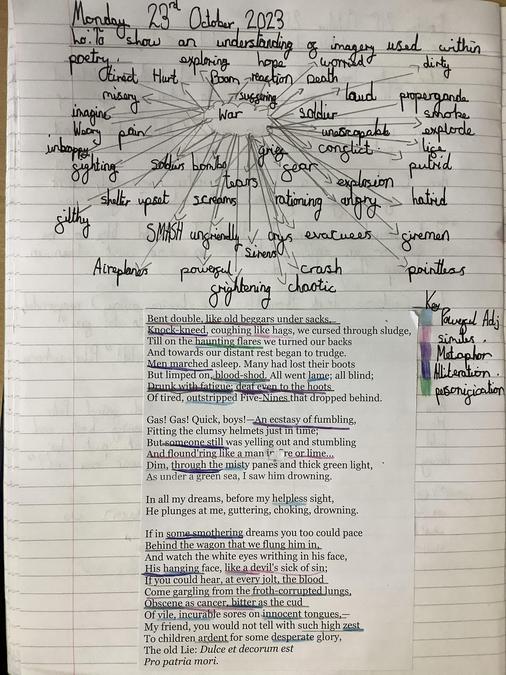 Monday 23rd October 2023
L.o: To show an understanding of imagery used within
poetry.
exploring hope worried dirty
tired Hurt Boom reaction Death
misery suffering loud propergande
imagine War soldiur smoke
Weary pain unescapable explode
unhappy grief conflict life
fighting soldius bombs fear putrid
tears explosion
shelter upset screams rationing angry hatrid
filthy
SMASH unfriendly crys evacuees firemen
sirens
Airoplanes powerful crash pointless
frightening chaotic
Key
Powerful Adj
similes.
Metaphor
Aliteration.
personification
Bent double, like old beggars under sacks,
Knock-kneed, coughing like hags, we cursed through sludge,
Till on the haunting flares we turned our backs
And towards our distant rest began to trudge.
Men marched asleep. Many had lost their boots
But limped on, blood-shod. All went lame; all blind;
Drunk with fatigue; deaf even to the hoots
Of tired, outstripped Five-Nines that dropped behind.
Gas! Gas! Quick, boys!—An ecstasy of fumbling,
Fitting the clumsy helmets just in time;
But someone still was yelling out and stumbling
And flound'ring like a man in re or lime...
Dim, through the misty panes and thick green light,
As under a green sea, I saw him drowning.
In all my dreams, before my helpless sight,
He plunges at me, guttering, choking, drowning.
If in some smothering dreams you too could pace
Behind the wagon that we flung him in,
And watch the white eyes writhing in his face,
His hanging face, like a devil's sick of sin;
If you could hear, at every jolt, the blood
Come gargling from the froth-corrupted lungs,
Obscene as cancer, bitter as the cud
Of vile, incurable sores on innocent tongues,—
My friend, you would not tell with such high zest
To children ardent for some desperate glory,
The old Lie: Dulce et decorum est
Pro patria mori.